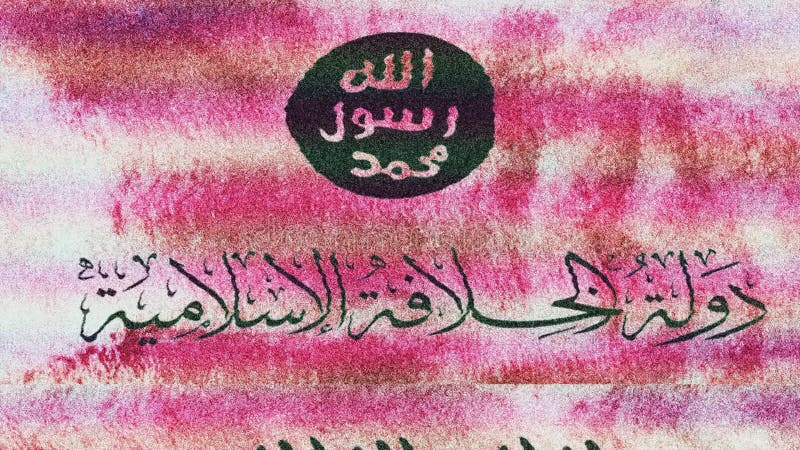 الله
رسول
محمد
دَوْلَةُ الخِلافَةُ الإِسْلامِيَّة